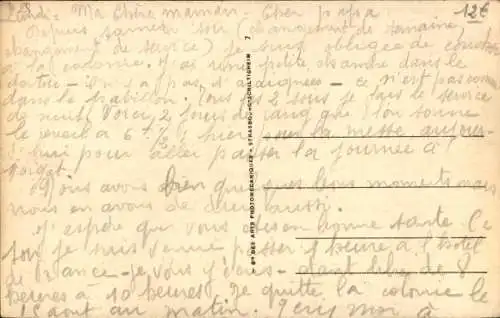 Lundi: Ma Chère maman. Cher papa
Depuis samedi soir (changement de semaine,
changement de service) je suis obligée de coucher
à la colonie. J'ai une petite chambre dans le
dortoir - On a pas d'araignées - ce n'est pas comme
dans le pavillon. Tous les 2 jours je fais le service
de nuit. Voici 2 jours de rang que l'on sonne
le réveil à 6 h ½, hier pour la messe aujour-
d'hui pour aller passer la journée à
Nous avons bien quelques bons moments mais
nous en avons de durs aussi.
J'espère que vous êtes en bonne santé. Ce
soir je suis venue passer 1 heure à l'hôtel
de France - je vous y écris - étant libre de 8
heures à 10 heures. Je quitte la colonie le
15 août au matin. à
12€
7
Cie DES ARTS PHOTOMECANIQUES - STRASBOURG-SCHILTIGHEIM